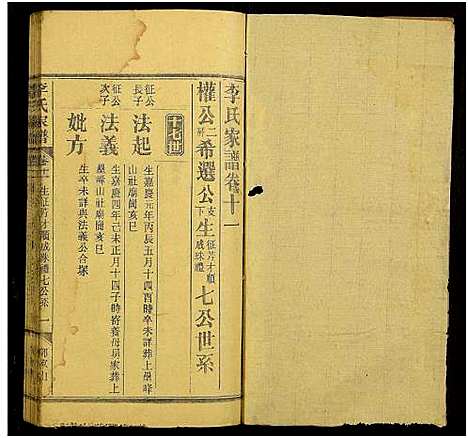 李氏家譜卷十一
權公二房希選公支下生征芳才順成珠禮七公世系
十七世
征公長子 法起 生嘉慶元年丙辰五月十四酉時卒未詳葬上壘峰山社廟崗亥巳
征公次子 法義 生嘉慶四年己未正月十四子時寄養母房家葬上壘峰山社廟崗亥巳
妣方 生卒未詳與法義公合塚
李氏家譜 卷十一 生征芳才順成珠禮七公系 一